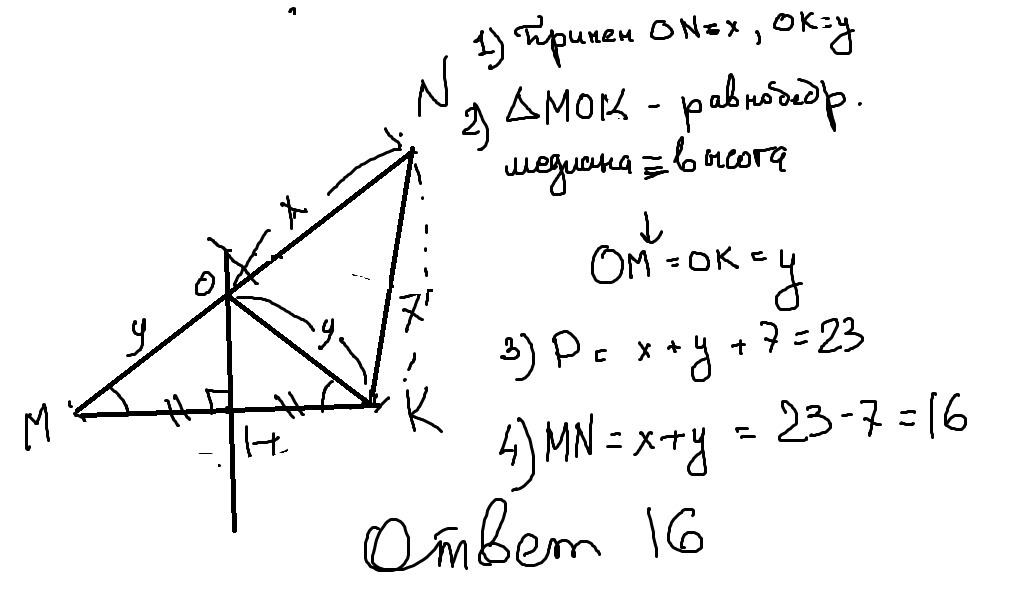 1) Примем ON=x, OK=y
N
2) △MOK - равнобедр.
медиана ≡ высота
x
OM = OK = y
O
y
y
7
3) P = x + y + 7 = 23
M
K
H
4) MN = x+y = 23-7 = 16
Ответ 16